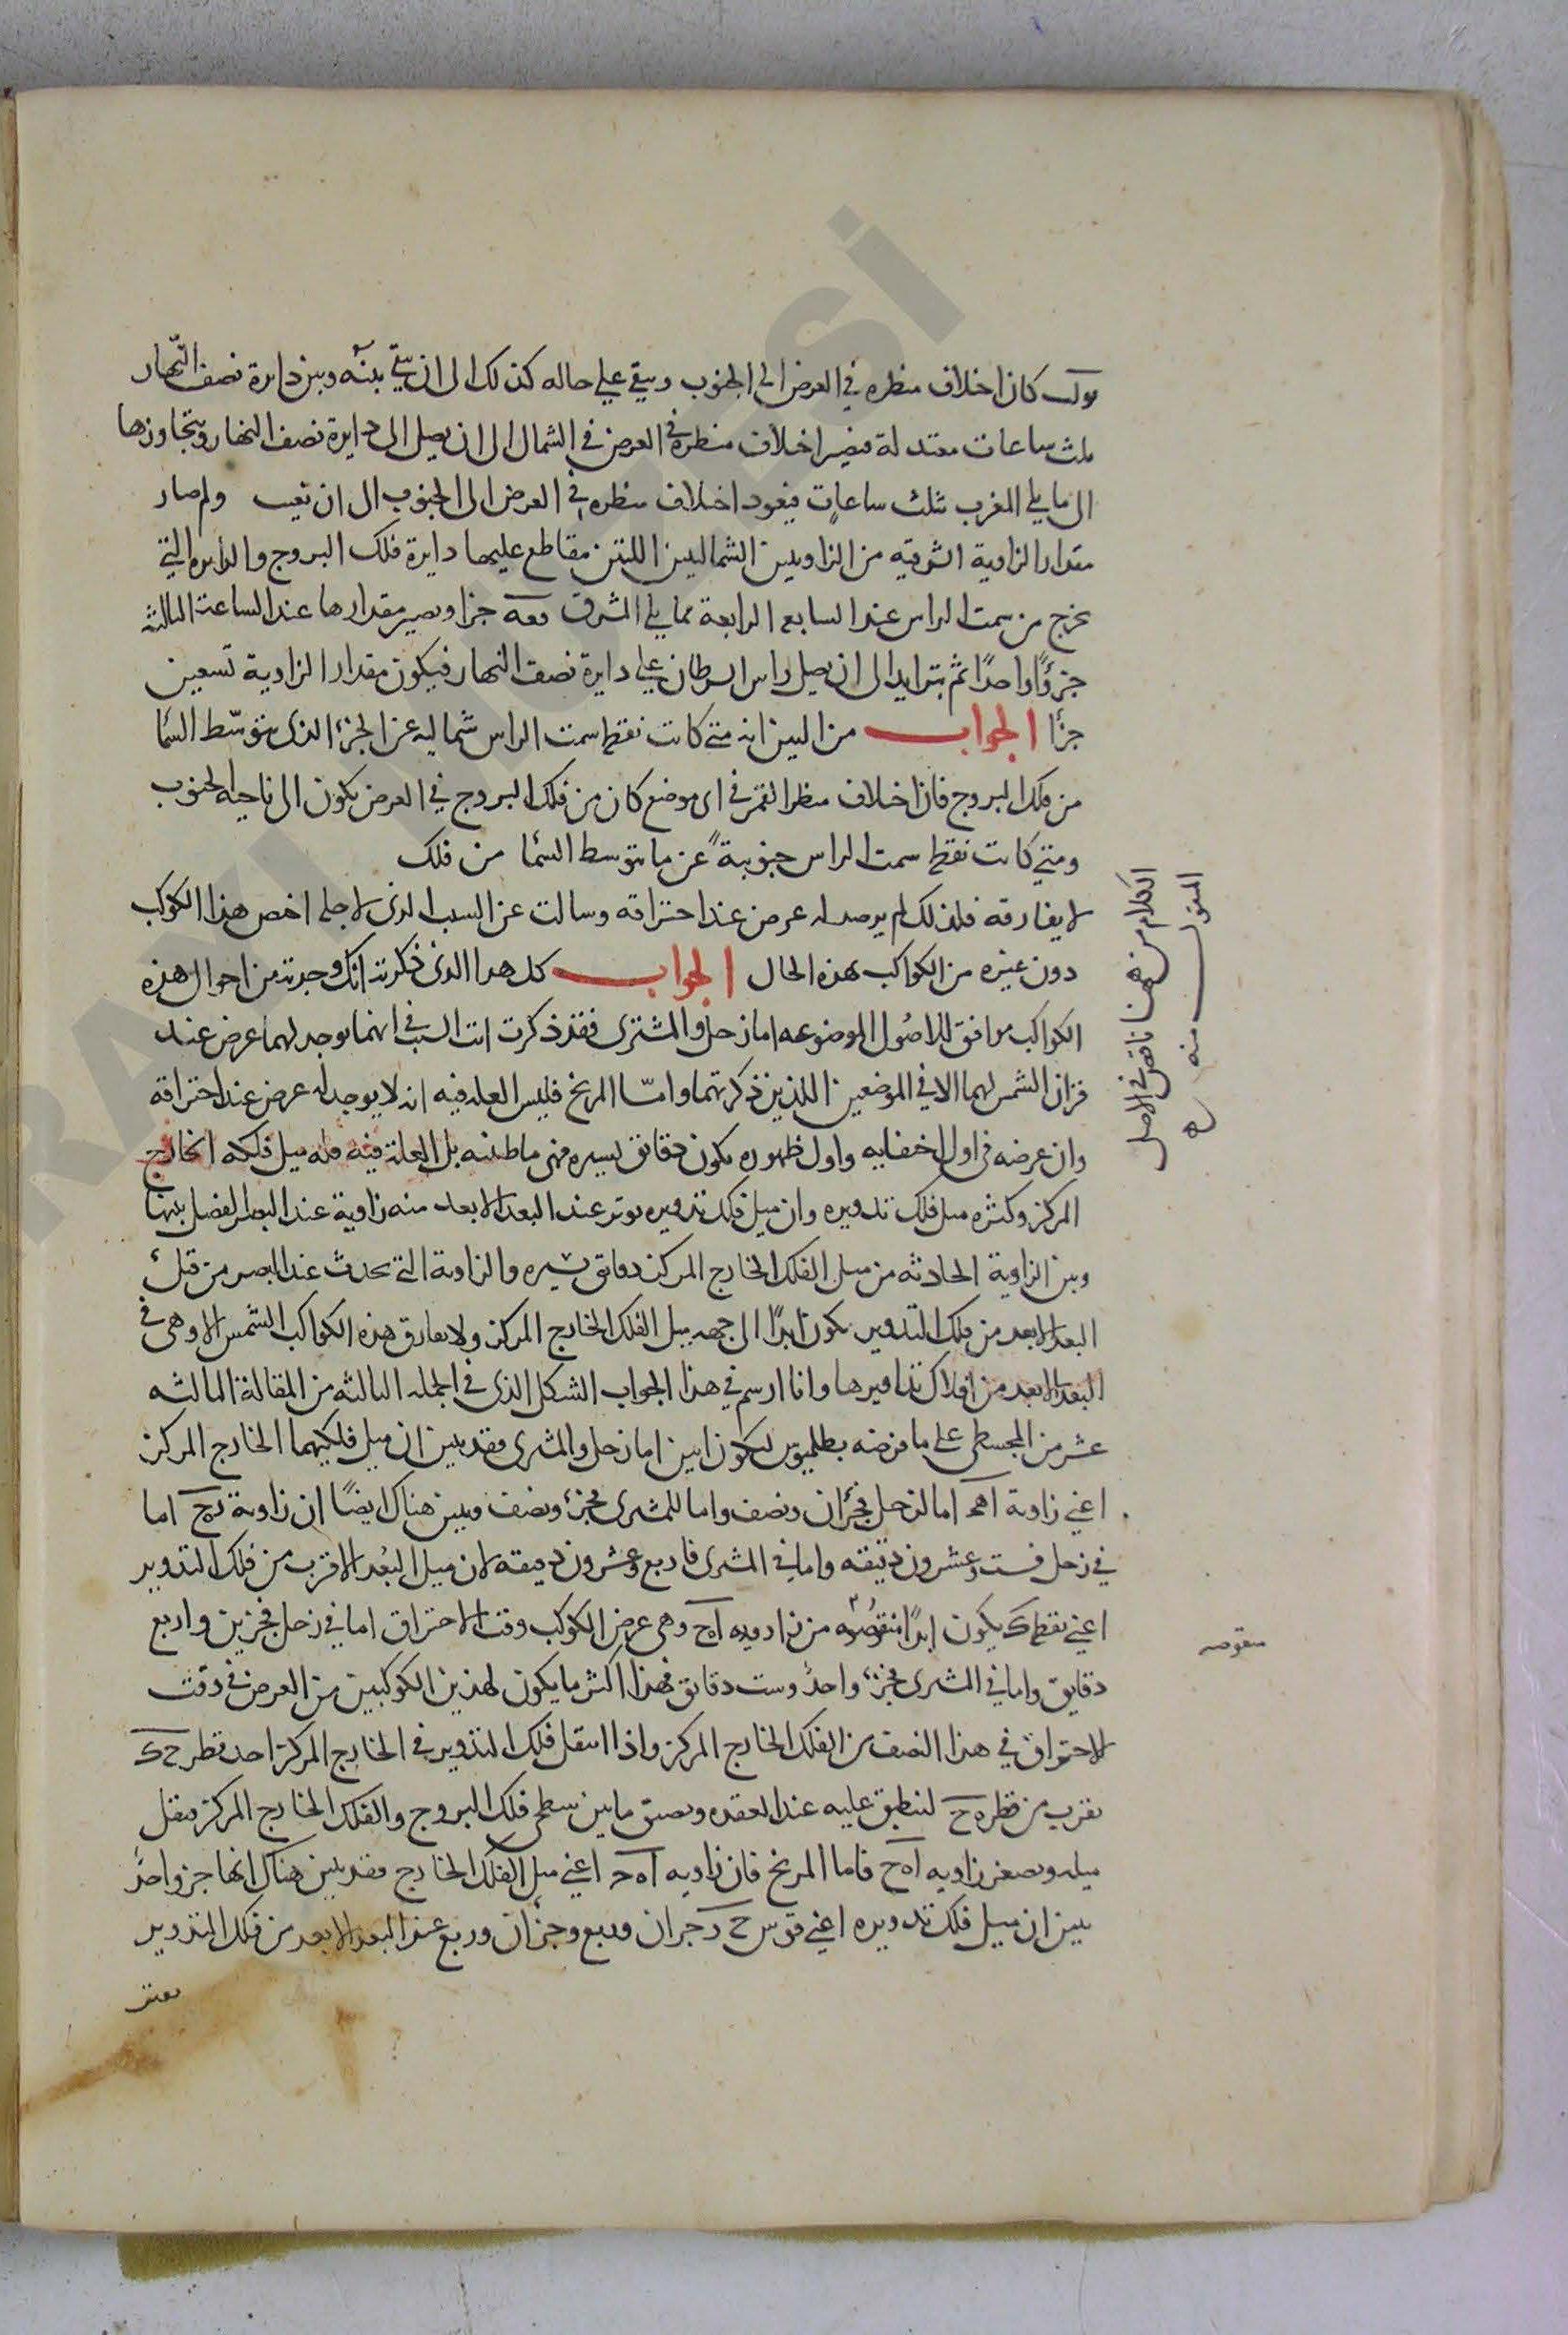 كان اخلاف منظره في العرض الى الجنوب ويبقى على حاله كذلك الى ان يبقى بينه وبين دايرة نصف النهار
ثلث ساعات معتدلة فيصير اخلاف منظره في العرض في الشمال الى ان يصل الى دايرة نصف النهار ويتجاوزها
الى ما يلي المغرب بثلث ساعات فيعود اخلاف منظره في العرض الى الجنوب الى ان تغيب ولم صار
مقدار الزاوية الشرقيه من الزاويتين الشماليتين اللتين يتقاطع عليهما دايرة فلك البروج والدايره التي
تخرج من سمت الراس عند الساعه الرابعة مما يلي المشرق جزا ويصير مقدارها عند الساعة الثالثة
جزوًا واحدًا ثم يتزايد الى ان يصل راس السرطان على دايرة نصف النهار فيكون مقدار الزاوية تسعين
جزًا الجواب من البين انه متى كانت نقطة سمت الراس شماليه عن الجزء الذي يتوسّط السما
من فلك البروج فان اخلاف منظر القمر في اى موضع كان من فلك البروج في العرض يكون الى ناحية الجنوب
ومتى كانت نقطة سمت الراس جنوبيةً عن ما يتوسط السما من فلك
لا يفارقه فلذلك لم يرصد له عرض عند احتراقه وسالت عن السبب الذي لاجله اخص هذا الكوكب
دون غيره من الكواكب بهذه الحال الجواب كل هذا الذي ذكرت انك وجدته من احوال هذه
الكواكب موافق للاصُول الموضوعه اما زحل والمشترى فقد ذكرت انت السبب في انهما يوجد لهما عرض عند
قران الشمس لهما الا في الموضعين اللذين ذكرتهما وامّا المريخ فليس العلة فيه انه لا يوجد له عرض عند احتراقه
وان عرضه في اول اخفايه واول ظهوره يكون دقايق يسيره فهي ما ظننه بل العلة فيه قلة ميل فلكه الخارج
المركز وكثرة ميل فلك تدويره وان ميل فلك تدويره يوتر عند البعد الابعد منه زاوية عند البصر الفضل بينها
وبين الزاوية الحادثه من ميل الفلك الخارج المركز دقايق يسيره والزاوية التي تحدث عند البصر من قبل
البعد الابعد من فلك التدوير يكون ابدًا الى جهه ميل الفلك الخارج المركز ولا يفارق هذه الكواكب الشمس الا وهي في
البعد الابعد من افلاك تداويرها وانا ارسم في هذا الجواب الشكل الذي في الجملة الثالثه من المقالة الثالثه
عشر من المجسطي على ما فرضه بطلميوس ليكون ابين اما زحل والمشتري فقد بين ان ميل فلكيهما الخارج المركز
اعني زاوية اما لزحل فجزان ونصف واما للمشتري فجزء ونصف وبين هناك ايضًا ان زاوية اما
في زحل فست وعشرون دقيقه واما في المشتري فاربع وعشرون دقيقه لان ميل البُعد الاقرب من فلك التدوير
اعني نقطة يكون ابدًا منقوصه من زاويه وهي عرض الكوكب وقت الاحتراق اما في زحل فجزين واربع
دقايق واما في المشتري فجزء واحدٌ وست دقايق فهذا اكثر ما يكون لهذين الكوكبين من العرض في وقت
الاحتراق في هذا النصف من الفلك الخارج المركز واذا انتقل فلك التدوير في الخارج المركز اخذ قطر
يقرب من قطر لينطبق عليه عند العقده ويضيق ما بين سطحي فلك البروج والفلك الخارج المركز فيقل
ميله ويصغر زاويه فاما المريخ فان زاويه اعني ميل الفلك الخارج فقد بين هناك انها جزو واحدٌ
بين ان ميل فلك تدويره اعني قوس جزان وربع وجزأن وربع عند البعد الابعد من فلك التدوير
الكلام من ههنا ناقص في الاصل
المنقول منه
منقوصه